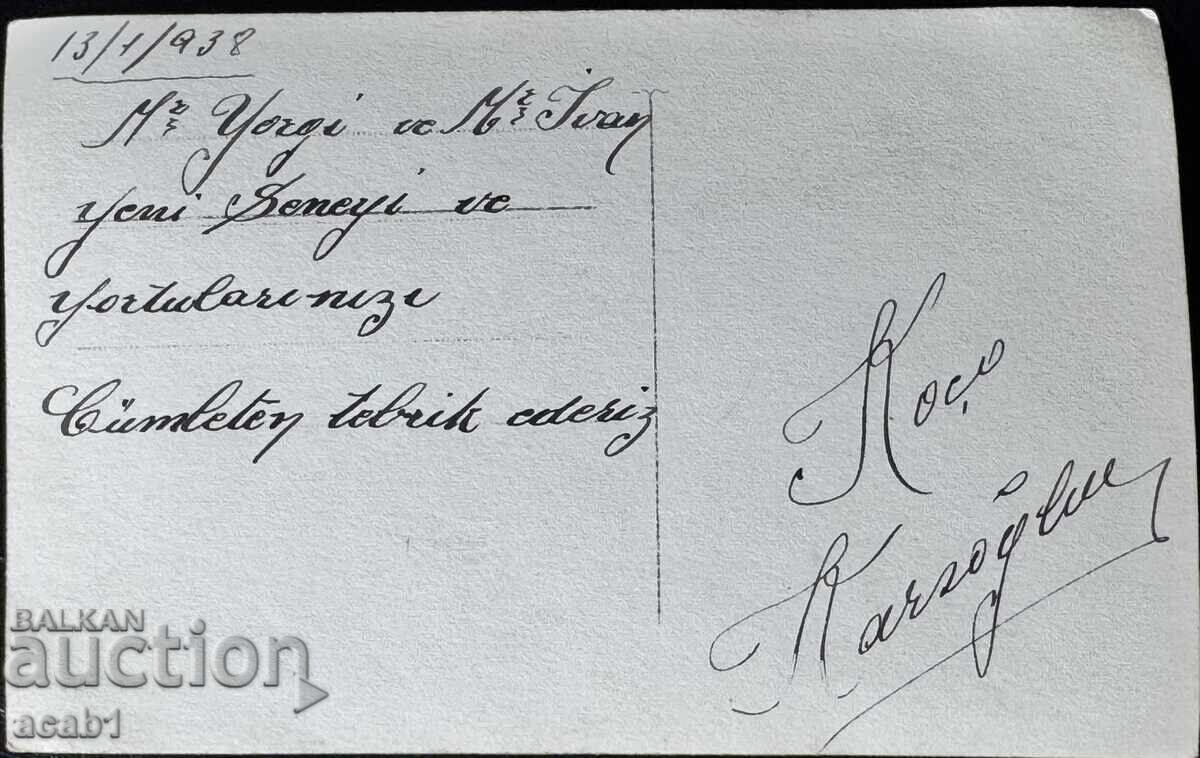 13/1/938
Mr Yorgi ve Mr İvan
yeni Seneyi ve
yortularınızı
Cümleten tebrik ederiz
Koço
Karsoğlu
BALKAN
auction
acab1